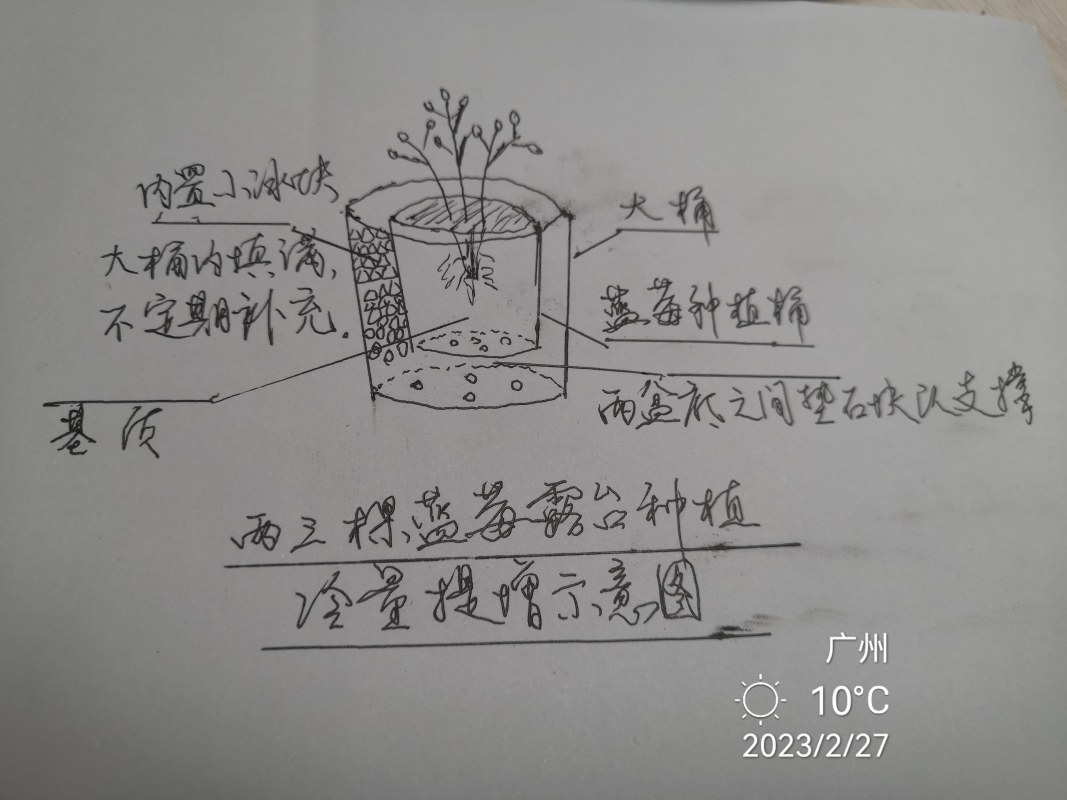 内置小冰块
大桶内填满,
不定期补充.
基质
大桶
蓝莓种植桶
两盆底之间垫石块以支撑
两三棵蓝莓露台种植
冷量提增示意图
广州
10°C
2023/2/27